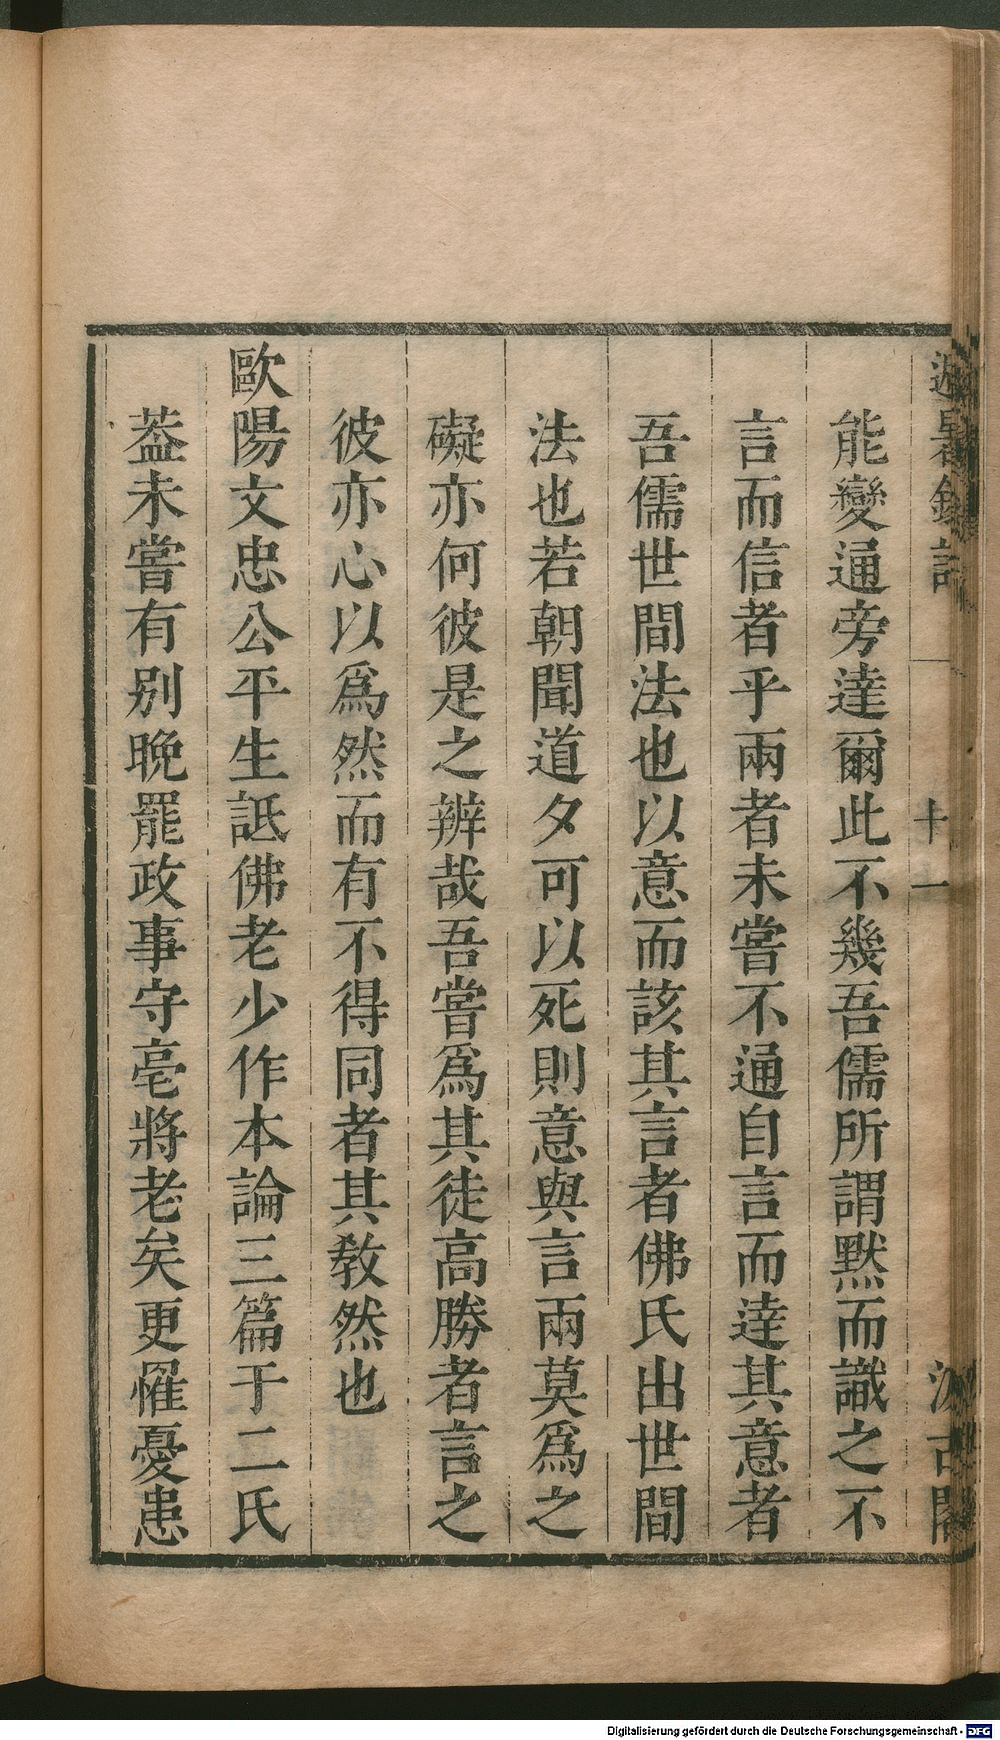 避暑錄話
十一
汲古閣
能變通旁達爾此不幾吾儒所謂默而識之不
言而信者乎兩者未嘗不通自言而達其意者
吾儒世間法也以意而該其言者佛氏出世間
法也若朝聞道夕可以死則意與言兩莫爲之
礙亦何彼是之辨哉吾嘗爲其徒高勝者言之
彼亦心以爲然而有不得同者其敎然也
歐陽文忠公平生詆佛老少作本論三篇于二氏
葢未嘗有別晚罷政事守亳將老矣更罹憂患
Digitalisierung gefördert durch die Deutsche Forschungsgemeinschaft - DFG